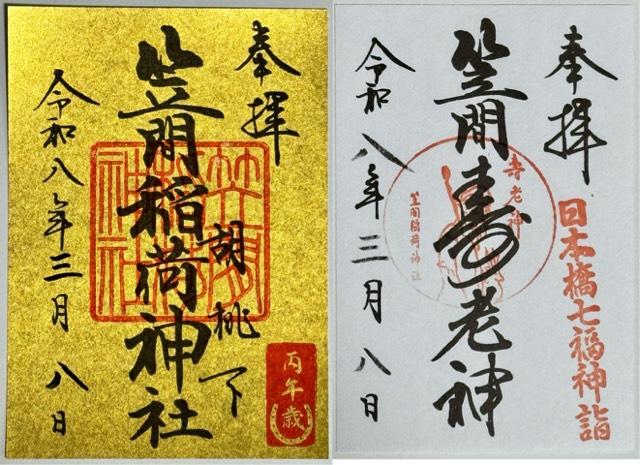 奉拝
笠間稲荷神社
胡桃下
令和八年三月八日
笠間稲荷神社
丙午歳
奉拝
日本橋七福神詣
笠間寿老神
寿老神
笠間稲荷神社
令和八年三月八日